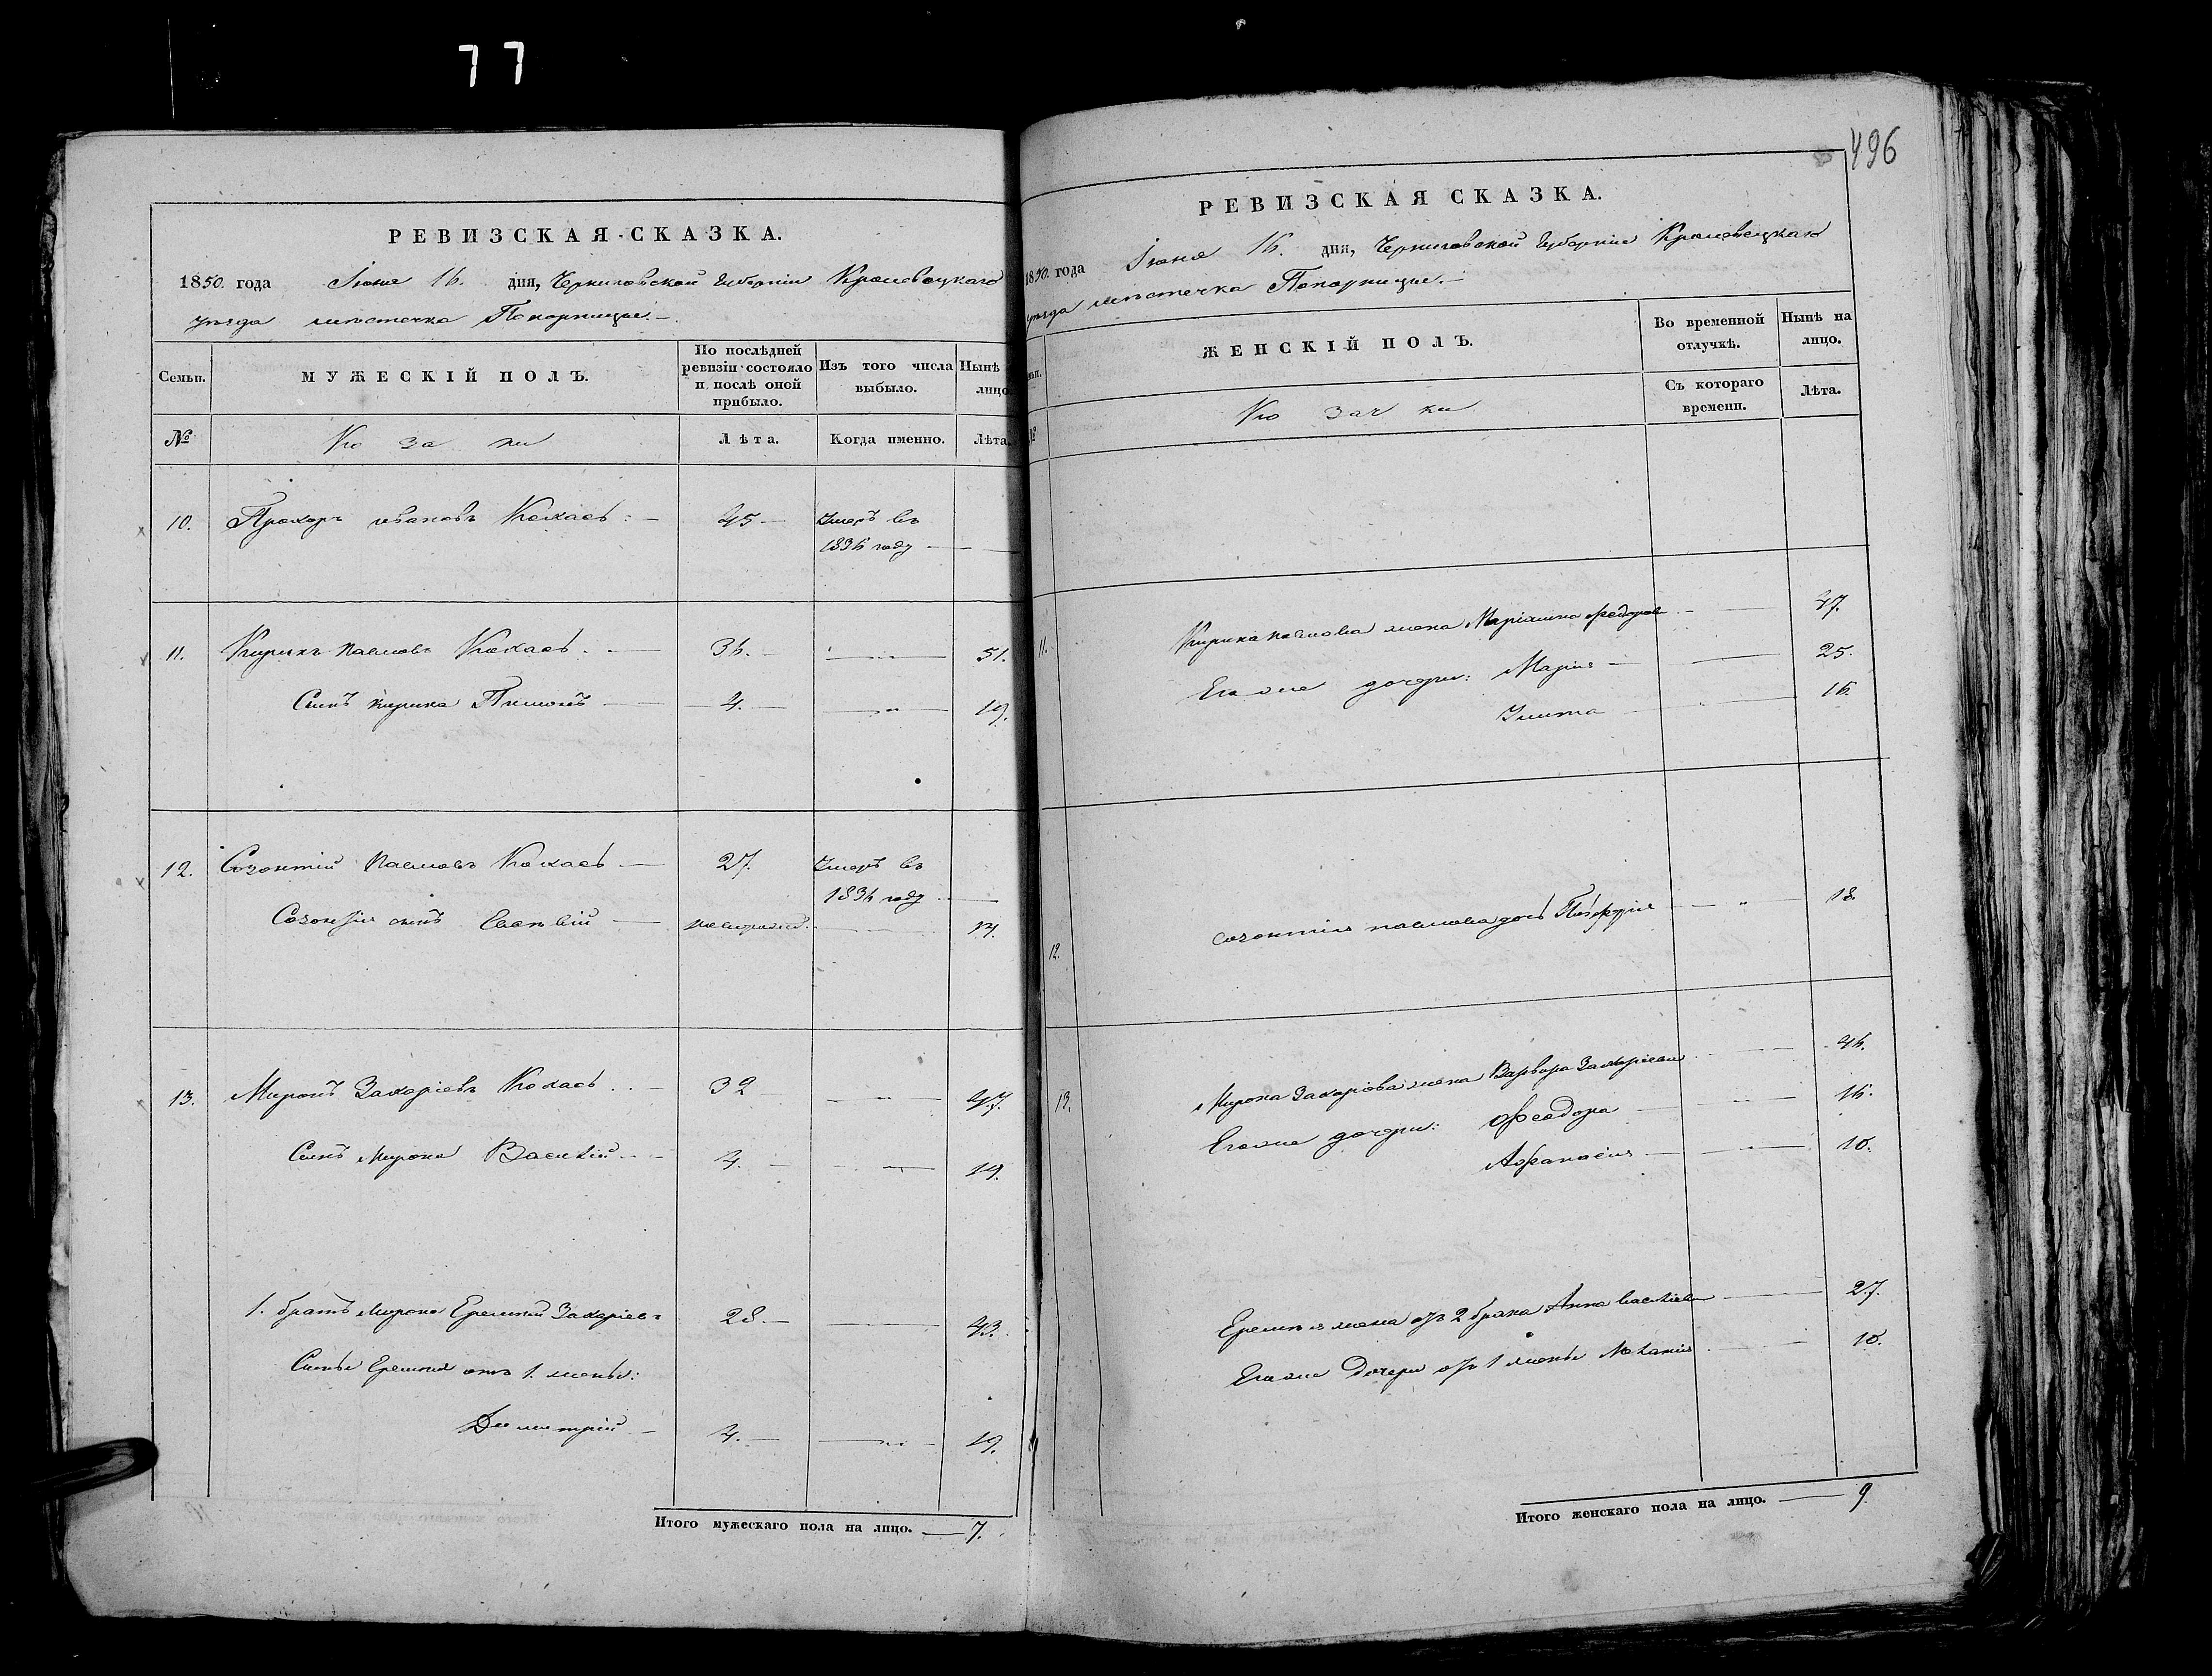 77
496
РЕВИЗСКАЯ СКАЗКА.
1850. года Іюня 16. дня, Черниговской Губерніи Кролевецкаго
уѣзда мѣстечка Понорницы.
Семьи. МУЖЕСКІЙ ПОЛЪ. По послѣдней ревизіи состояло и послѣ оной прибыло. Изъ того числа выбыло. Нынѣ лицо
№ Козаки Лѣта. Когда именно. Лѣта.
10. Прохоръ Ивановъ 45 Умеръ въ
1836 году
11. Кирикъ Павловъ 36. 51.
Сынъ Кирика Пименъ 4. 19.
12. Созонтій Павловъ 27. Умеръ въ
1836 году
Созонтія сынъ Евсевій
13. Миронъ Захаріевъ 32 47.
Сынъ Мирона Василій 4. 19.
1. братъ Мирона Еремей Захаріевъ 28. 43.
Сынъ Еремея отъ 1. жены:
Димитрій 4. 19.
Итого мужескаго пола на лицо. 7.
РЕВИЗСКАЯ СКАЗКА.
1850. года Іюня 16. дня, Черниговской Губерніи Кролевецкаго
уѣзда мѣстечка Понорницы.
ЖЕНСКІЙ ПОЛЪ. Во временной отлучкѣ. Нынѣ на лицо.
№ Козачки Съ котораго времени. Лѣта.
11. Кирика Павлова жена Маріанна Федорова 47.
Его же дочери: Марія 25.
Улита 16.
12. Созонтія Павлова дочь 18.
13. Мирона Захаріева жена Варвара Захаріева 46.
Его же дочери: Феодора 16.
Афанасія 10.
Еремея жена отъ 2 брака Анна Васильева 27.
Его же дочери отъ 1 жены 10.
Итого женскаго пола на лицо. 9